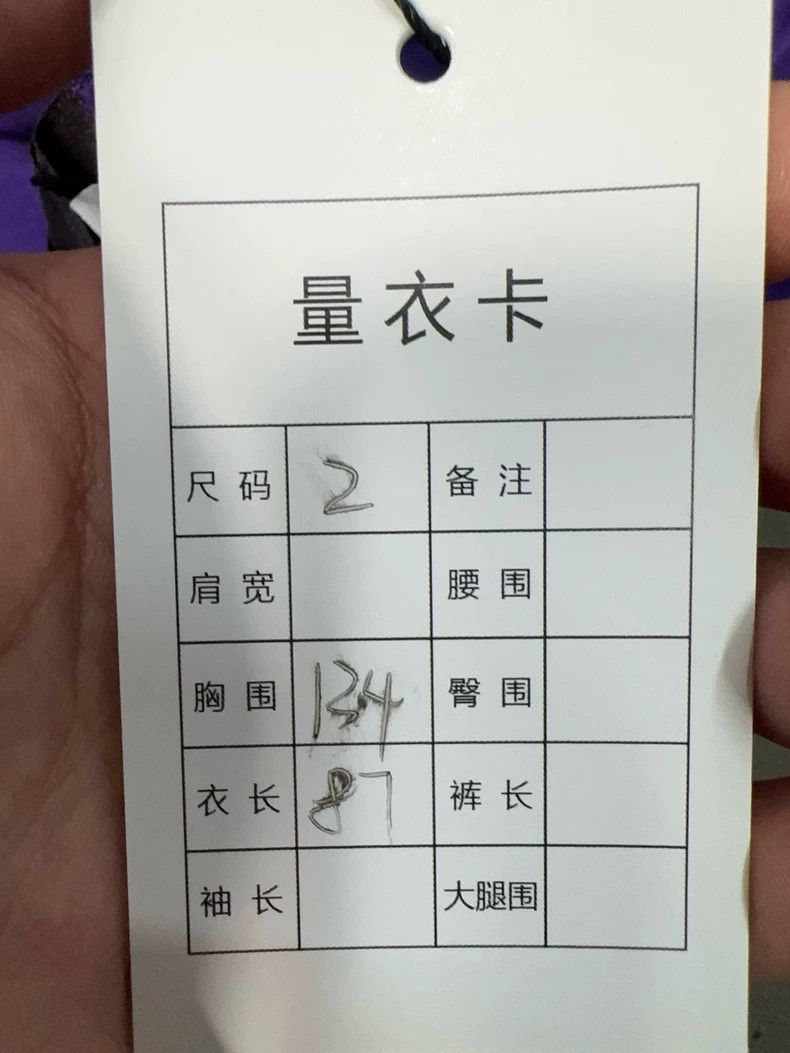 量衣卡
尺码 2 备注
肩宽 腰围
胸围 134 臀围
衣长 87 裤长
袖长 大腿围